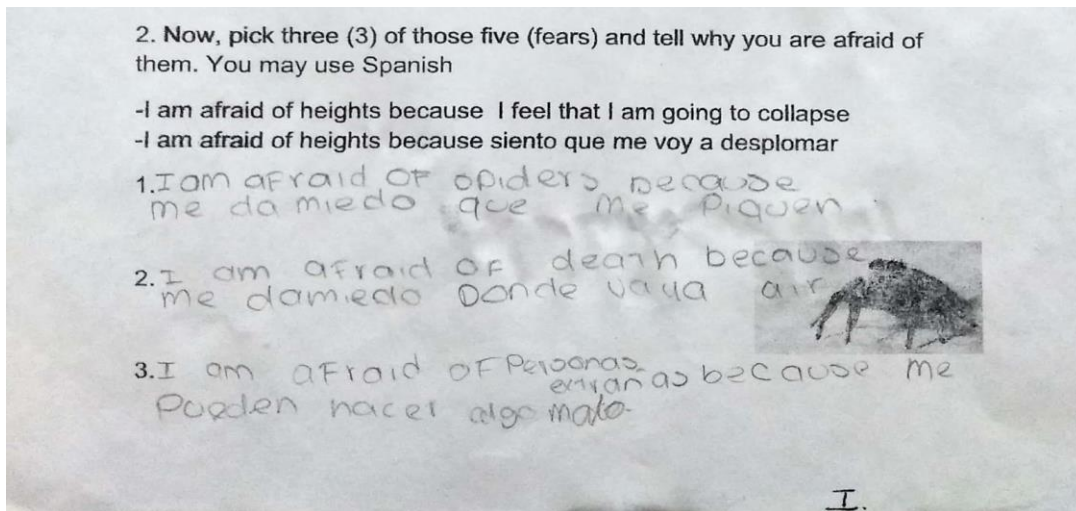 2. Now, pick three (3) of those five (fears) and tell why you are afraid of
them. You may use Spanish
-I am afraid of heights because I feel that I am going to collapse
-I am afraid of heights because siento que me voy a desplomar
1.I am aFraid oF spiders because
me da miedo que me Piquen.
2.I am aFraid oF death because
me da miedo Donde vaya air
3.I am aFraid oF Personas
extranas because me
Pueden hacer algo malo.
I.